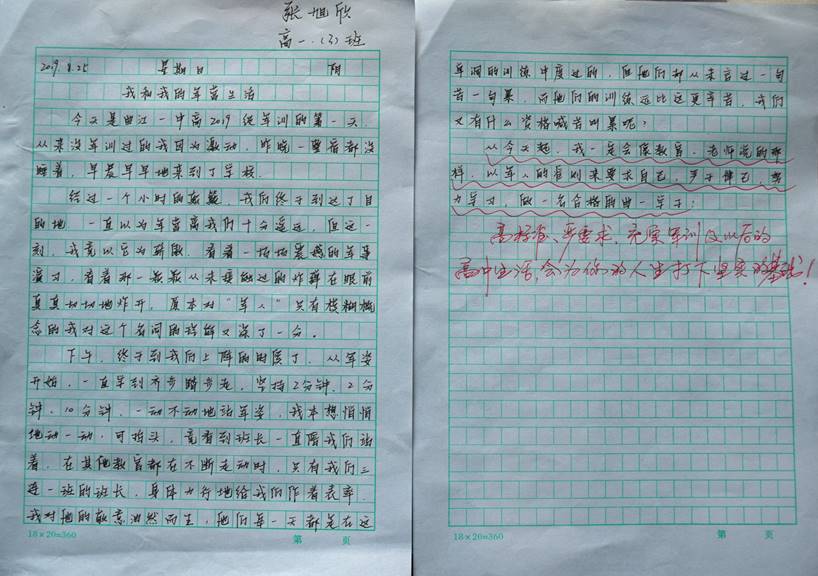 张旭欣
高一.(3)班
2019.8.25 星期日 阴
我和我的军营生活
今天是曲江一中高2019级军训的第一天,
从来没军训过的我因为激动,昨晚一整宿都没
睡着,早晨早早地来到了学校.
经过一个小时的颠簸,我们终于到达了目
的地 一直以为军营离我们十分遥远,但这一
刻,我竟以它为骄傲.看着一场场震撼的军事
演习,看着那一颗颗从未接触过的炸弹在眼前
真真切切地炸开,原本对“军人”只有模糊概
念的我对这个名词的理解又深了一分.
下午,终于到我们上阵的时候了.从军姿
开始,一直学到齐步踏步走,坚持2分钟,2分
钟,10分钟,一动不动地站军姿,我本想悄悄
地动一动,可抬头,竟看到班长一直陪我们站
着,在其他教官都在不断走动时,只有我们三
连一班的班长,身体力行地给我们作着表率.
我对他的敬意油然而生,他们每一天都是在这
18×20=360 第 页
单调的训练中度过的,但他们却从未言过一句
苦一句累,而他们的训练远比这更辛苦,我们
又有什么资格喊苦叫累呢?
从今天起,我一定会像教官、老师说的那
样,以军人的准则来要求自己,严于律己,努
力学习,做一名合格的曲一学子!
高标准、严要求,充实军训及以后的
高中生活,会为你的人生打下坚实的基础!
18×20=360 第 页